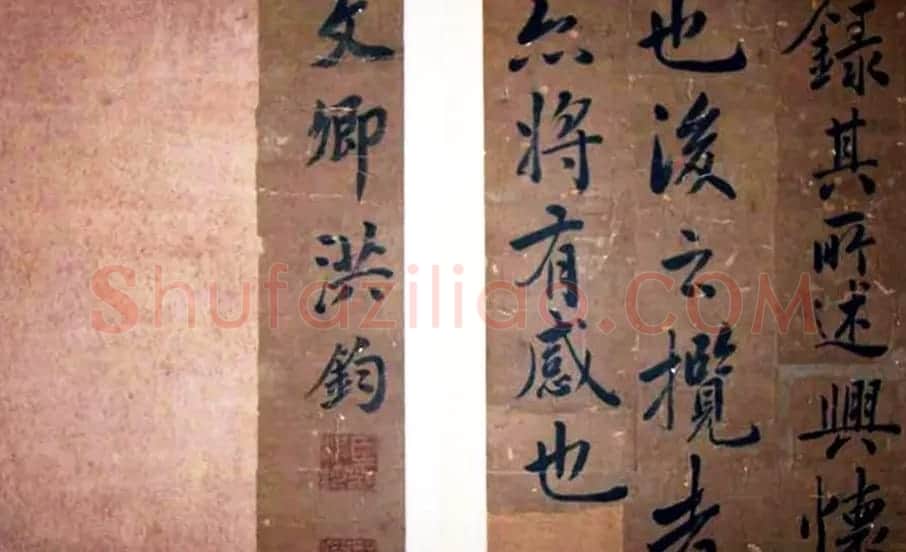 錄其所述興懷
也後云攬者
亦將有感也
文卿洪鈞
Shufaziliao.COM